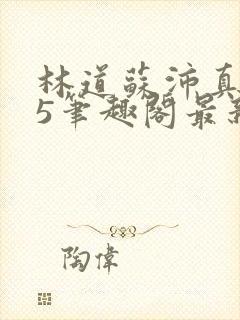 林道蘇沛真
5筆趣閣最新
陶偉